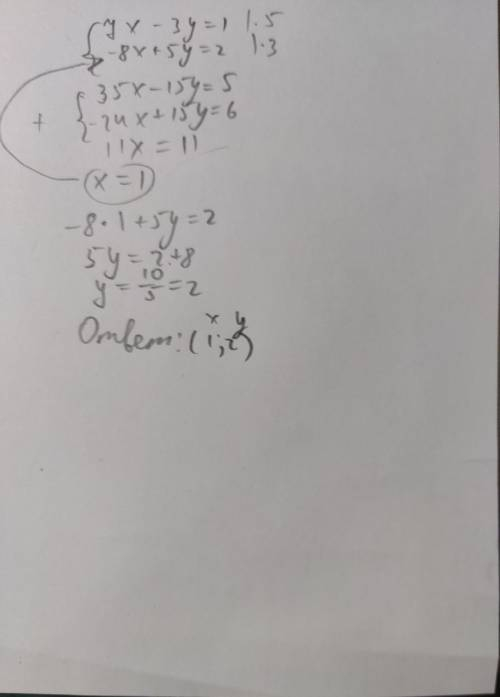 { 7x - 3y = 1 | · 5
-8x + 5y = 2 | · 3
+ { 35x - 15y = 5
-24x + 15y = 6
11x = 11
x = 1
-8 · 1 + 5y = 2
5y = 2 + 8
y = 10/5 = 2
x y
Ответ: (1; 2)